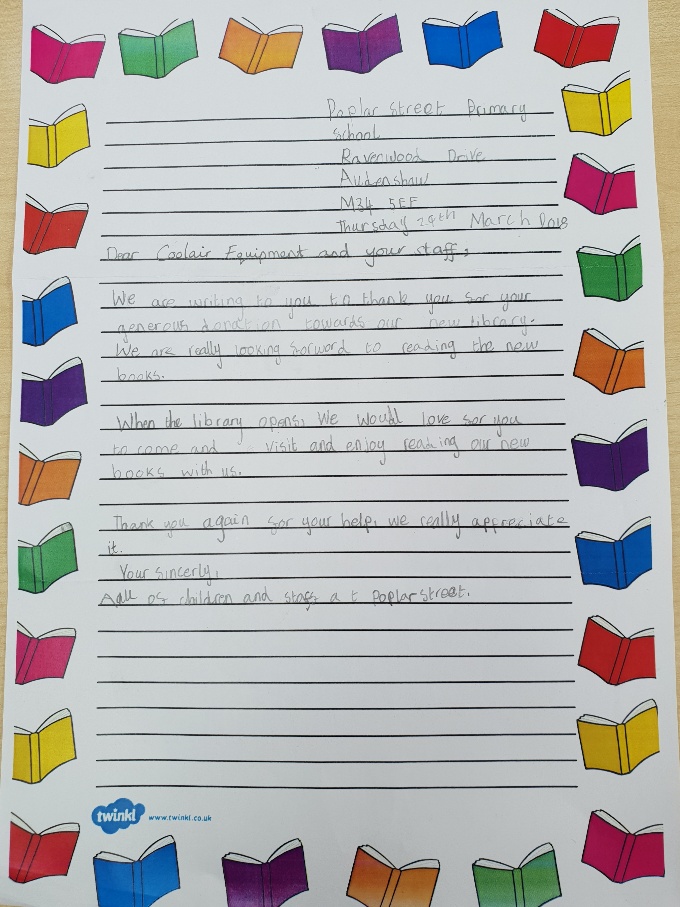 Poplar Street Primary
School
Ravenwood Drive
Audenshaw
M34 5EF
Thursday 29th March 2018
Dear Coolair Equipment and your staff,
We are writing to you to thank you for your
generous donation towards our new library.
We are really looking forward to reading the new
books.
When the library opens, We would love for you
to come and visit and enjoy reading our new
books with us.
Thank you again for your help, we really appreciate
it.
Your sincerly,
Aall of children and staff a t Poplar street.
twinkl www.twinkl.co.uk